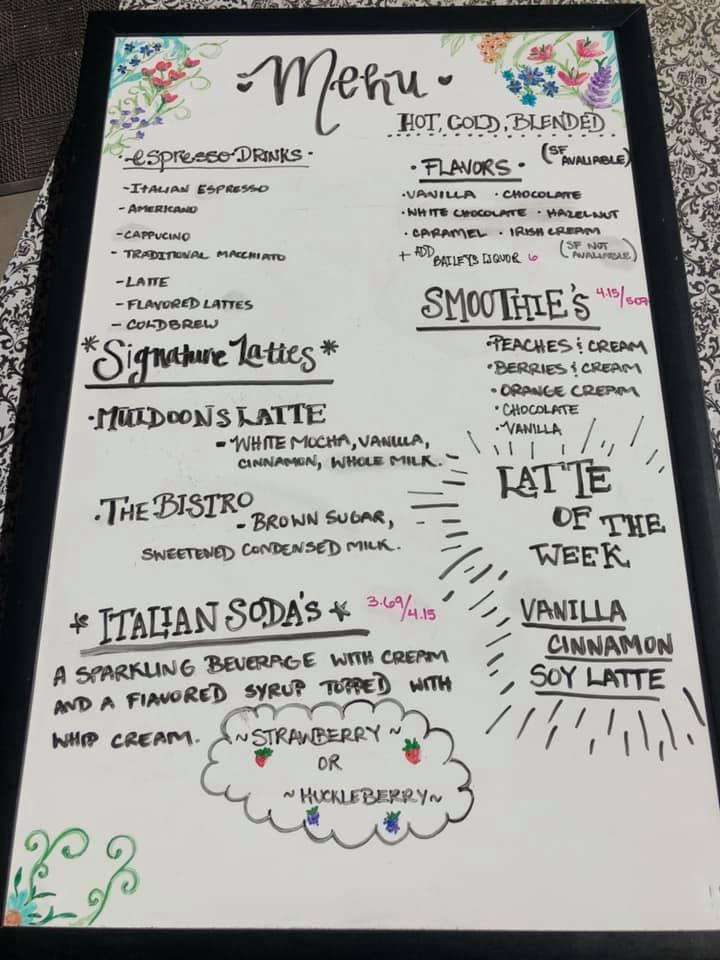 Menu
HOT, COLD, BLENDED
·espresso DRINKS·
-ITALIAN ESPRESSO
-AMERICANO
-CAPPUCINO
- TRADITIONAL MACCHIATO
-LATTE
-FLAVORED LATTES
- COLDBREW
*Signature Lattes*
·MULDOONS LATTE
- WHITE MOCHA, VANILLA,
CINNAMON, WHOLE MILK.
·THE BISTRO
- BROWN SUGAR,
SWEETENED CONDENSED MILK.
* ITALIAN SODA'S * 3.69/4.15
A SPARKLING BEVERAGE WITH CREAM
AND A FLAVORED SYRUP TOPPED WITH
WHIP CREAM.
~STRAWBERRY~
OR
~HUCKLEBERRY~
·FLAVORS· (SF AVALIABLE)
·VANILLA ·CHOCOLATE
·WHITE CHOCOLATE ·HAZELNUT
·CARAMEL ·IRISH CREAM
+ ADD BAILEY'S LIQUOR 6 (SF NOT AVALIABLE)
SMOOTHIE'S 4.15/5.07
·PEACHES & CREAM
·BERRIES & CREAM
·ORANGE CREAM
·CHOCOLATE
·VANILLA
LATTE
OF THE
WEEK
VANILLA
CINNAMON
SOY LATTE